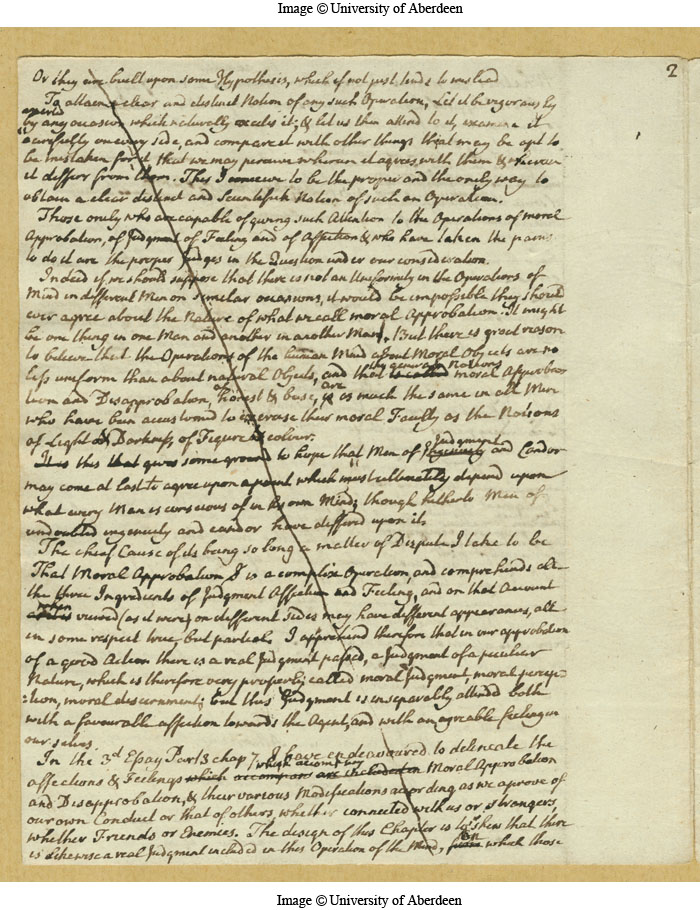 Image © University of Aberdeen
2
Or they are built upon some Hypothesis, which if not just tends to mislead
To attain a clear and distinct Notion of any such Operation, Let it be
by any occasion which naturally excites it; & let us then attend to it, examine it
carefully on every side, and compare it with other things that may be apt to
be mistaken for it that we may perceive wherein it agrees with them & wherein
it differs from them. This I conceive to be the proper and the onely way to
obtain a clear distinct and Scientifick Notion of such an Operation.
Those onely who are capable of giving such Attention to the Operations of moral
Approbation, of Judgment of Feeling and of Affection & who have taken the pains
to do it are the proper Judges in the Question under our consideration.
Indeed if we should suppose that there is not an Uniformity in the Operations of
Mind in different Men on similar occasions, it would be impossible they should
ever agree about the Nature of what we call moral Approbation. It might
be one thing in one Man and another in another Man. But there is great reason
to believe that the Operations of the human Mind about Moral Objects are no
less uniform than about natural Objects, and that the general Notions moral Approba
tion and Disapprobation, of honest & base, are as much the same in all Men
who have been accustomed to exercise their moral Faculty as the Notions
of Light & Darkness of Figure & colour.
It is this that gives some ground to hope that Men of Judgment and Candor
may come at last to agree upon a point which must ultimately depend upon
what every Man is conscious of in his own Mind; though hitherto Men of
undoubted ingenuity and candor have differd upon it.
The chief Cause of its being so long a matter of Dispute I take to be
That Moral Approbation is a complex Operation, and comprehends all
the three Ingredients of Judgment Affection and Feeling, and on that Account
when viewed (as it were) on different sides may have different appearances, all
in some respect true, but partial. I apprehend therefore that in our approbation
of a good Action there is a real Judgment passed, a Judgment of a peculiar
Nature, which is therefore very properly called moral Judgment, moral percep
:tion, moral discernment; but this Judgment is inseparably attended both
with a favourable affection towards the Agent, and with an agreable feeling in
our selves.
In the 3d Essay Part 3 chap 7, I have endeavoured to delineate the
affections & Feelings which accompany which accompany are included in Moral Approbation
and Disapprobation, & their various Modifications according as we aprove of
our own Conduct or that of others, whether connected with us or strangers,
whether Friends or Enemies. The design of this Chapter is to shew that there
is likewise a real Judgment included in this Operation of the Mind, on which those
Image © University of Aberdeen